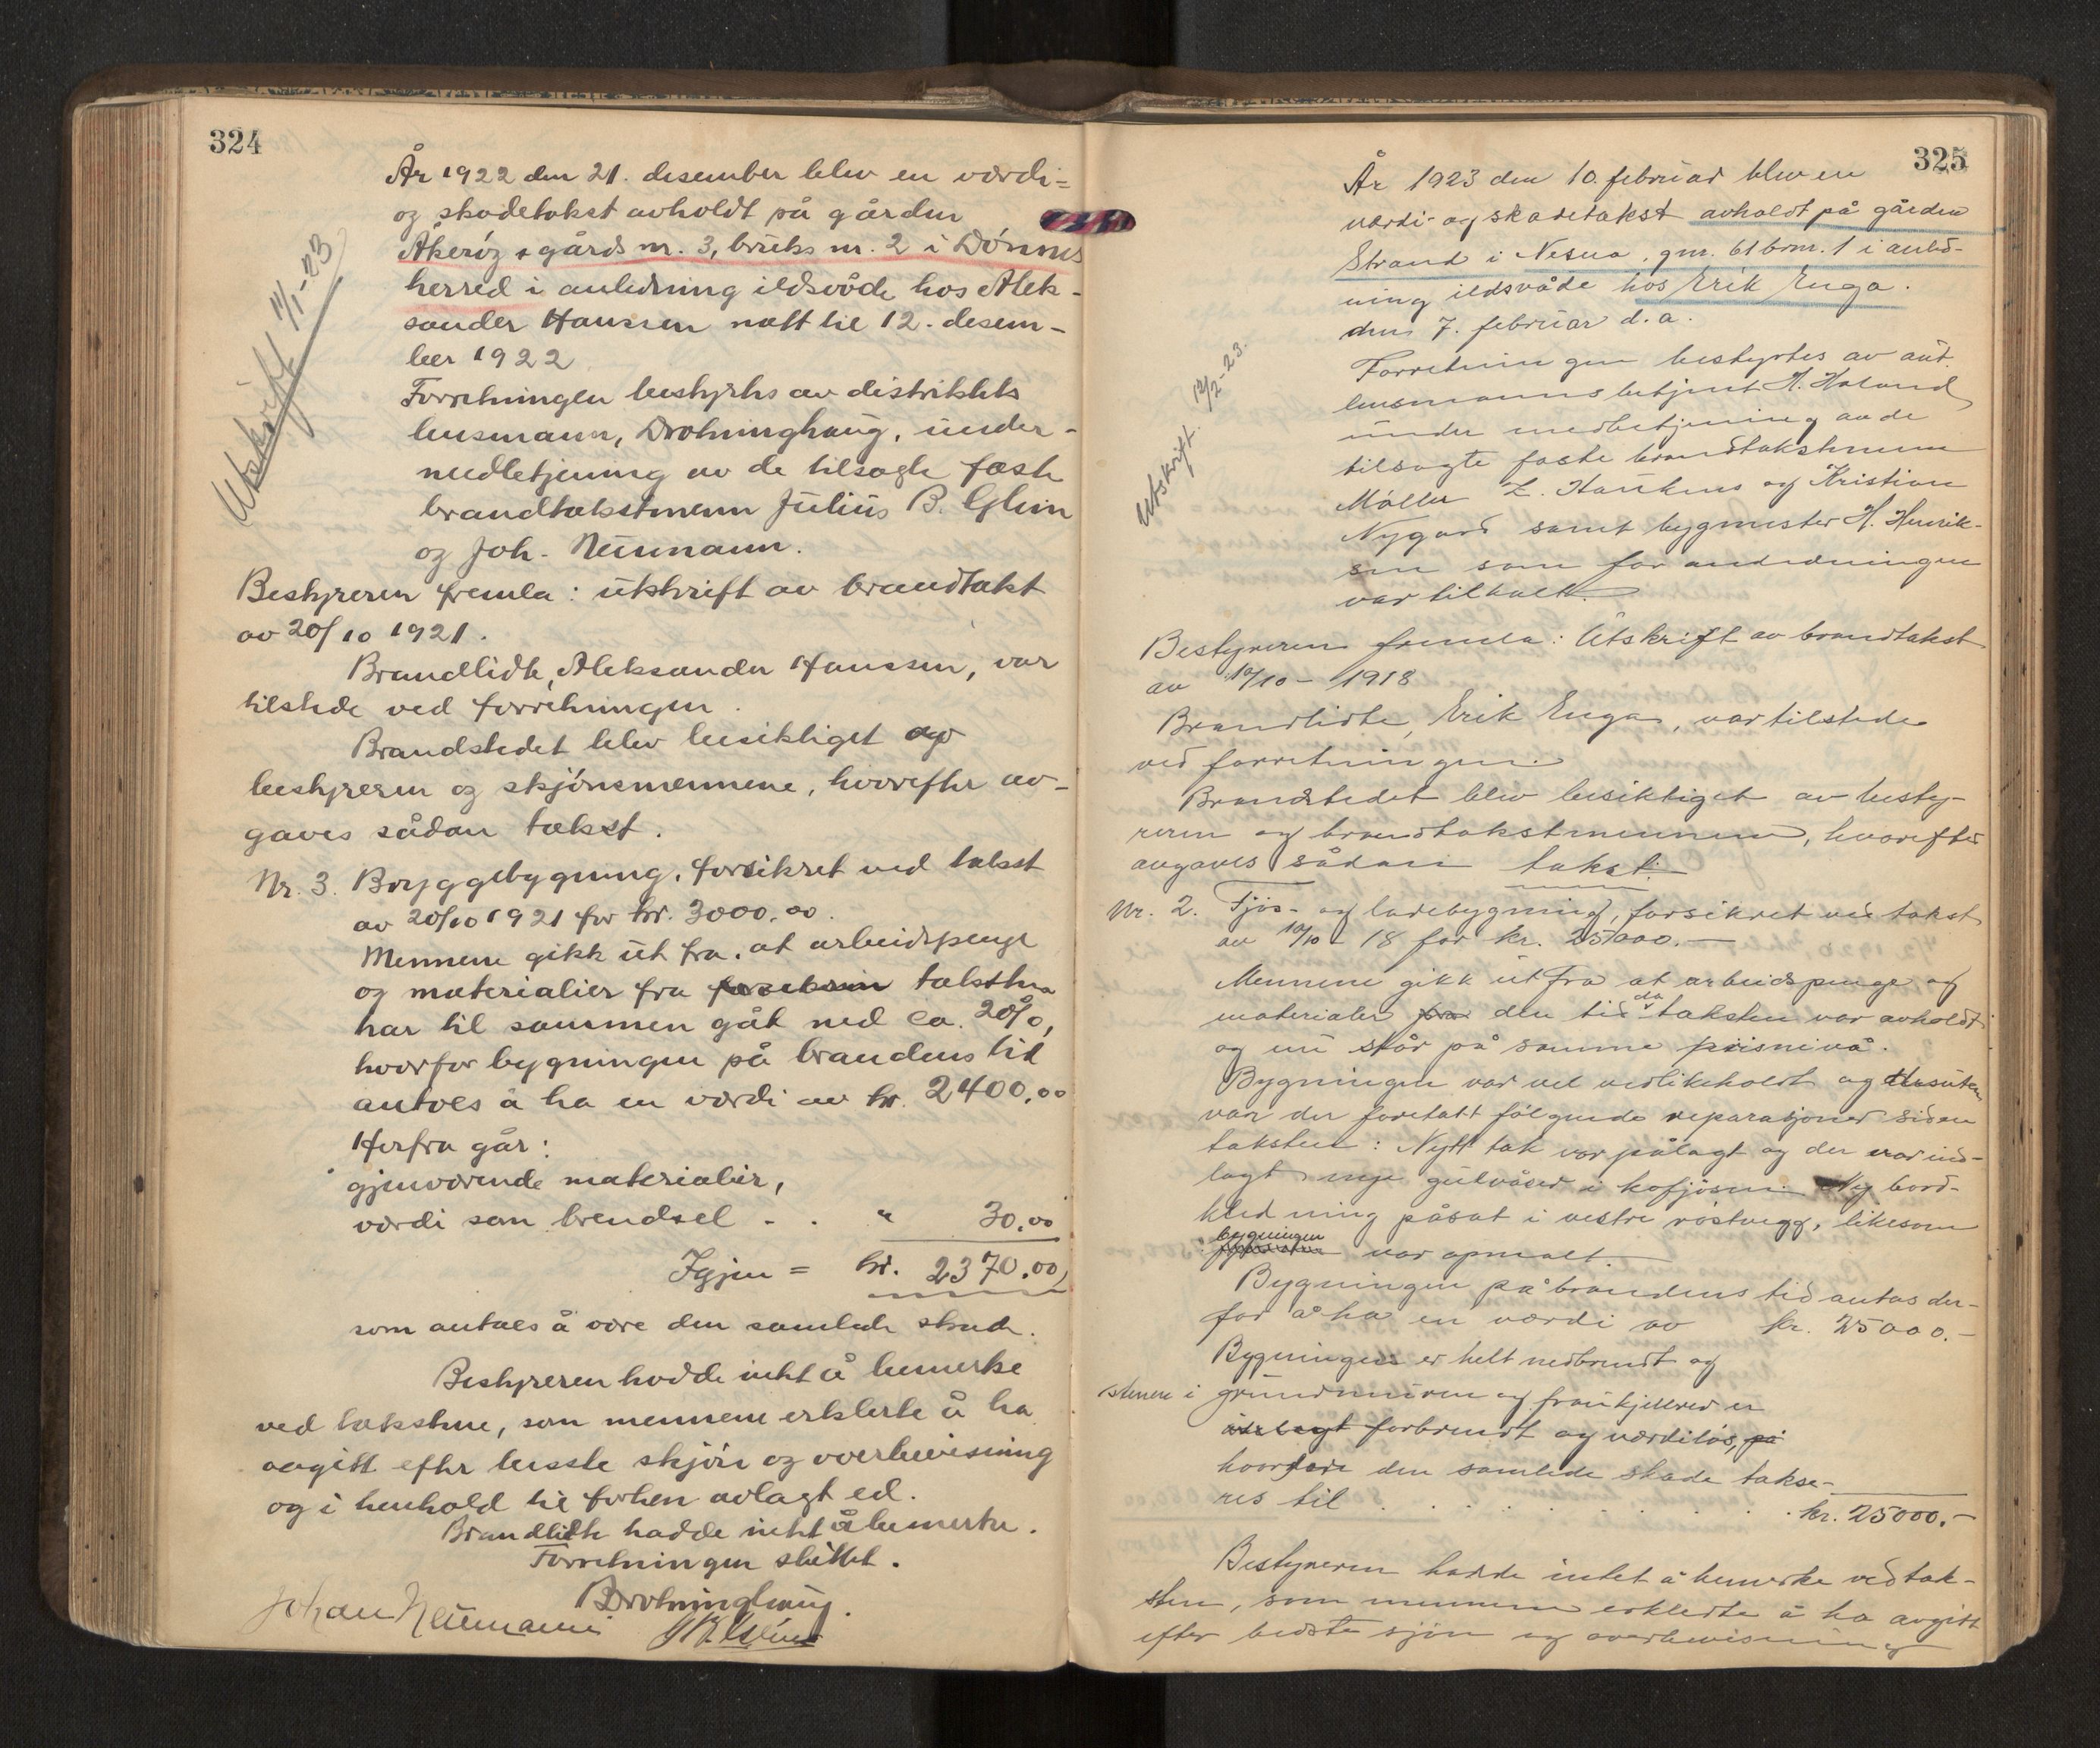 324
År 1922 den 21. desember blev en værdi=
og skadetakst avholdt på gården
Åkerøy, gårds nr. 3, bruks nr. 2 i Dønnes
herred i anledning ildsvåde hos Alek-
sander Hanssen natt til 12. desem-
ber 1922
Utskrift 11/1-23
Forretningen bestyrtes av distriktets
lensmann, Drotninghaug, under-
medbetjening av de tilsagte faste
brandtakstmenn Julius B. Glein
og Joh. Neumann.
Bestyreren fremla: utskrift av brandtakst
av 20/10 1921.
Brandlidte, Aleksander Hanssen, var
tilstede ved forretningen.
Brandstedet blev besiktiget av
bestyreren og skjønsmennene, hvorefter av-
gaves sådan takst.
Nr. 3. Bryggebygning, forsikret ved takst
av 20/10 1921 for kr. 3000.00.
Mennene gikk ut fra, at arbeidspenge
og materialier fra taksten
har til sammen gåt ned ca. 20%,
hvorfor bygningen på brandens tid
antoes å ha en værdi av kr. 2400.00
Herfra går:
gjenværende materialier,
værdi som brendsel - . " 30.00
Igjen = kr. 2370.00,
som antaes å være den samlede skade.
Bestyreren hadde intet å bemerke
ved takstene, som mennene erklerte å ha
avgitt efter beste skjøn og overbevisning
og i henhold til forhen avlagt ed.
Brandlidte hadde intet å bemerke.
Forretningen sluttet.
Drotninghaug.
Johan Neumann
325
År 1923 den 10. februar blev en
værdi- og skadetakst avholdt på gården
Strand i Nesna, gnr. 61 brnr. 1 i anled-
ning ildsvåde hos Erik Enga.
den 7. februar d.a.
Utskrift 12/2-23.
Forretningen bestyrtes av aut.
lensmannsbetjent H. Haland
under medbetjening av de
tilsagte faste brandtakstmenn
Møller Z. Hankens og Kristian
Nygard samt bygmester H. Henrik-
sen som for andledningen
var tilkalt.
Bestyreren fremla: Utskrift av brandtakst
av 10/10 - 1918
Brandlidte, Erik Enga, var tilstede
ved forretningen.
Brandstedet blev besiktiget av besty-
reren og brandtakstmennene, hvorefter
avgaves sådan takst:
Nr. 2. Fjøs- og ladebygning, forsikret ved takst
av 10/10 - 18 for kr. 25000.-
Mennene gikk ut fra at arbeidspenge og
materialer fra den tid da taksten var avholdt
og nu står på samme prisnivå.
Bygningen var vel vedlikeholdt og desuten
var der foretatt følgende reparasjoner siden
taksten: Nytt tak var pålagt og der var ind-
lagt nye gulvåser i kofjøsen. Ny bord-
kledning påsat i vestre røstvegg, likesom
bygningen var opmalt.
Bygningen på brandens tid antas der-
for å ha en værdi av kr. 25000.-
Bygningen er helt nedbrendt og
stenene i grundmuren og fraukjelleren er
ødelagt forbrendt og værdiløs, på
hvorfor den samlede skade takse-
res til . . . . . . . . . . kr. 25000.-
Bestyreren hadde intet å bemerke ved tak-
sten, som mennene erklerte å ha avgitt
efter bedste sjøn og overbevisning